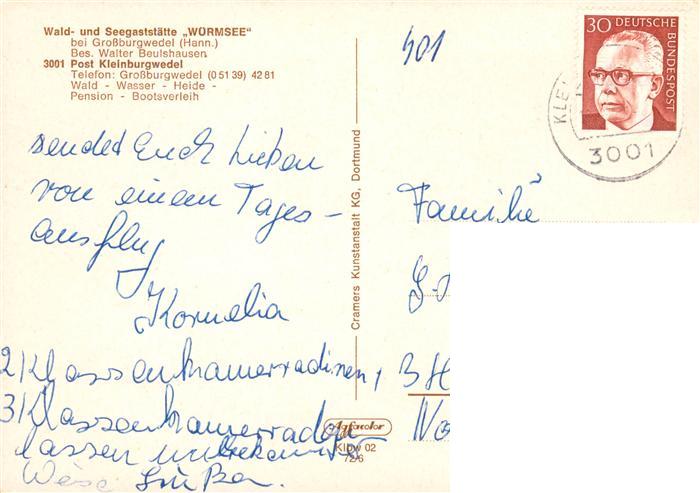 Wald- und Seegaststätte „WÜRMSEE“
bei Großburgwedel (Hann.)
Bes. Walter Beulshausen
3001 Post Kleinburgwedel
Telefon: Großburgwedel (0 51 39) 42 81
Wald - Wasser - Heide -
Pension - Bootsverleih
401
30 DEUTSCHE
BUNDESPOST
KLEI
3001
sendet Euch Lieben
von einem Tages-
ausflug
Kornelia
2 Klassenkameradinen,
3 Klassenkameraden
lassen unbekannter
Grüßen.
Cramers Kunstanstalt KG, Dortmund
Agfacolor
Klbw 02
72/6
Familie
3